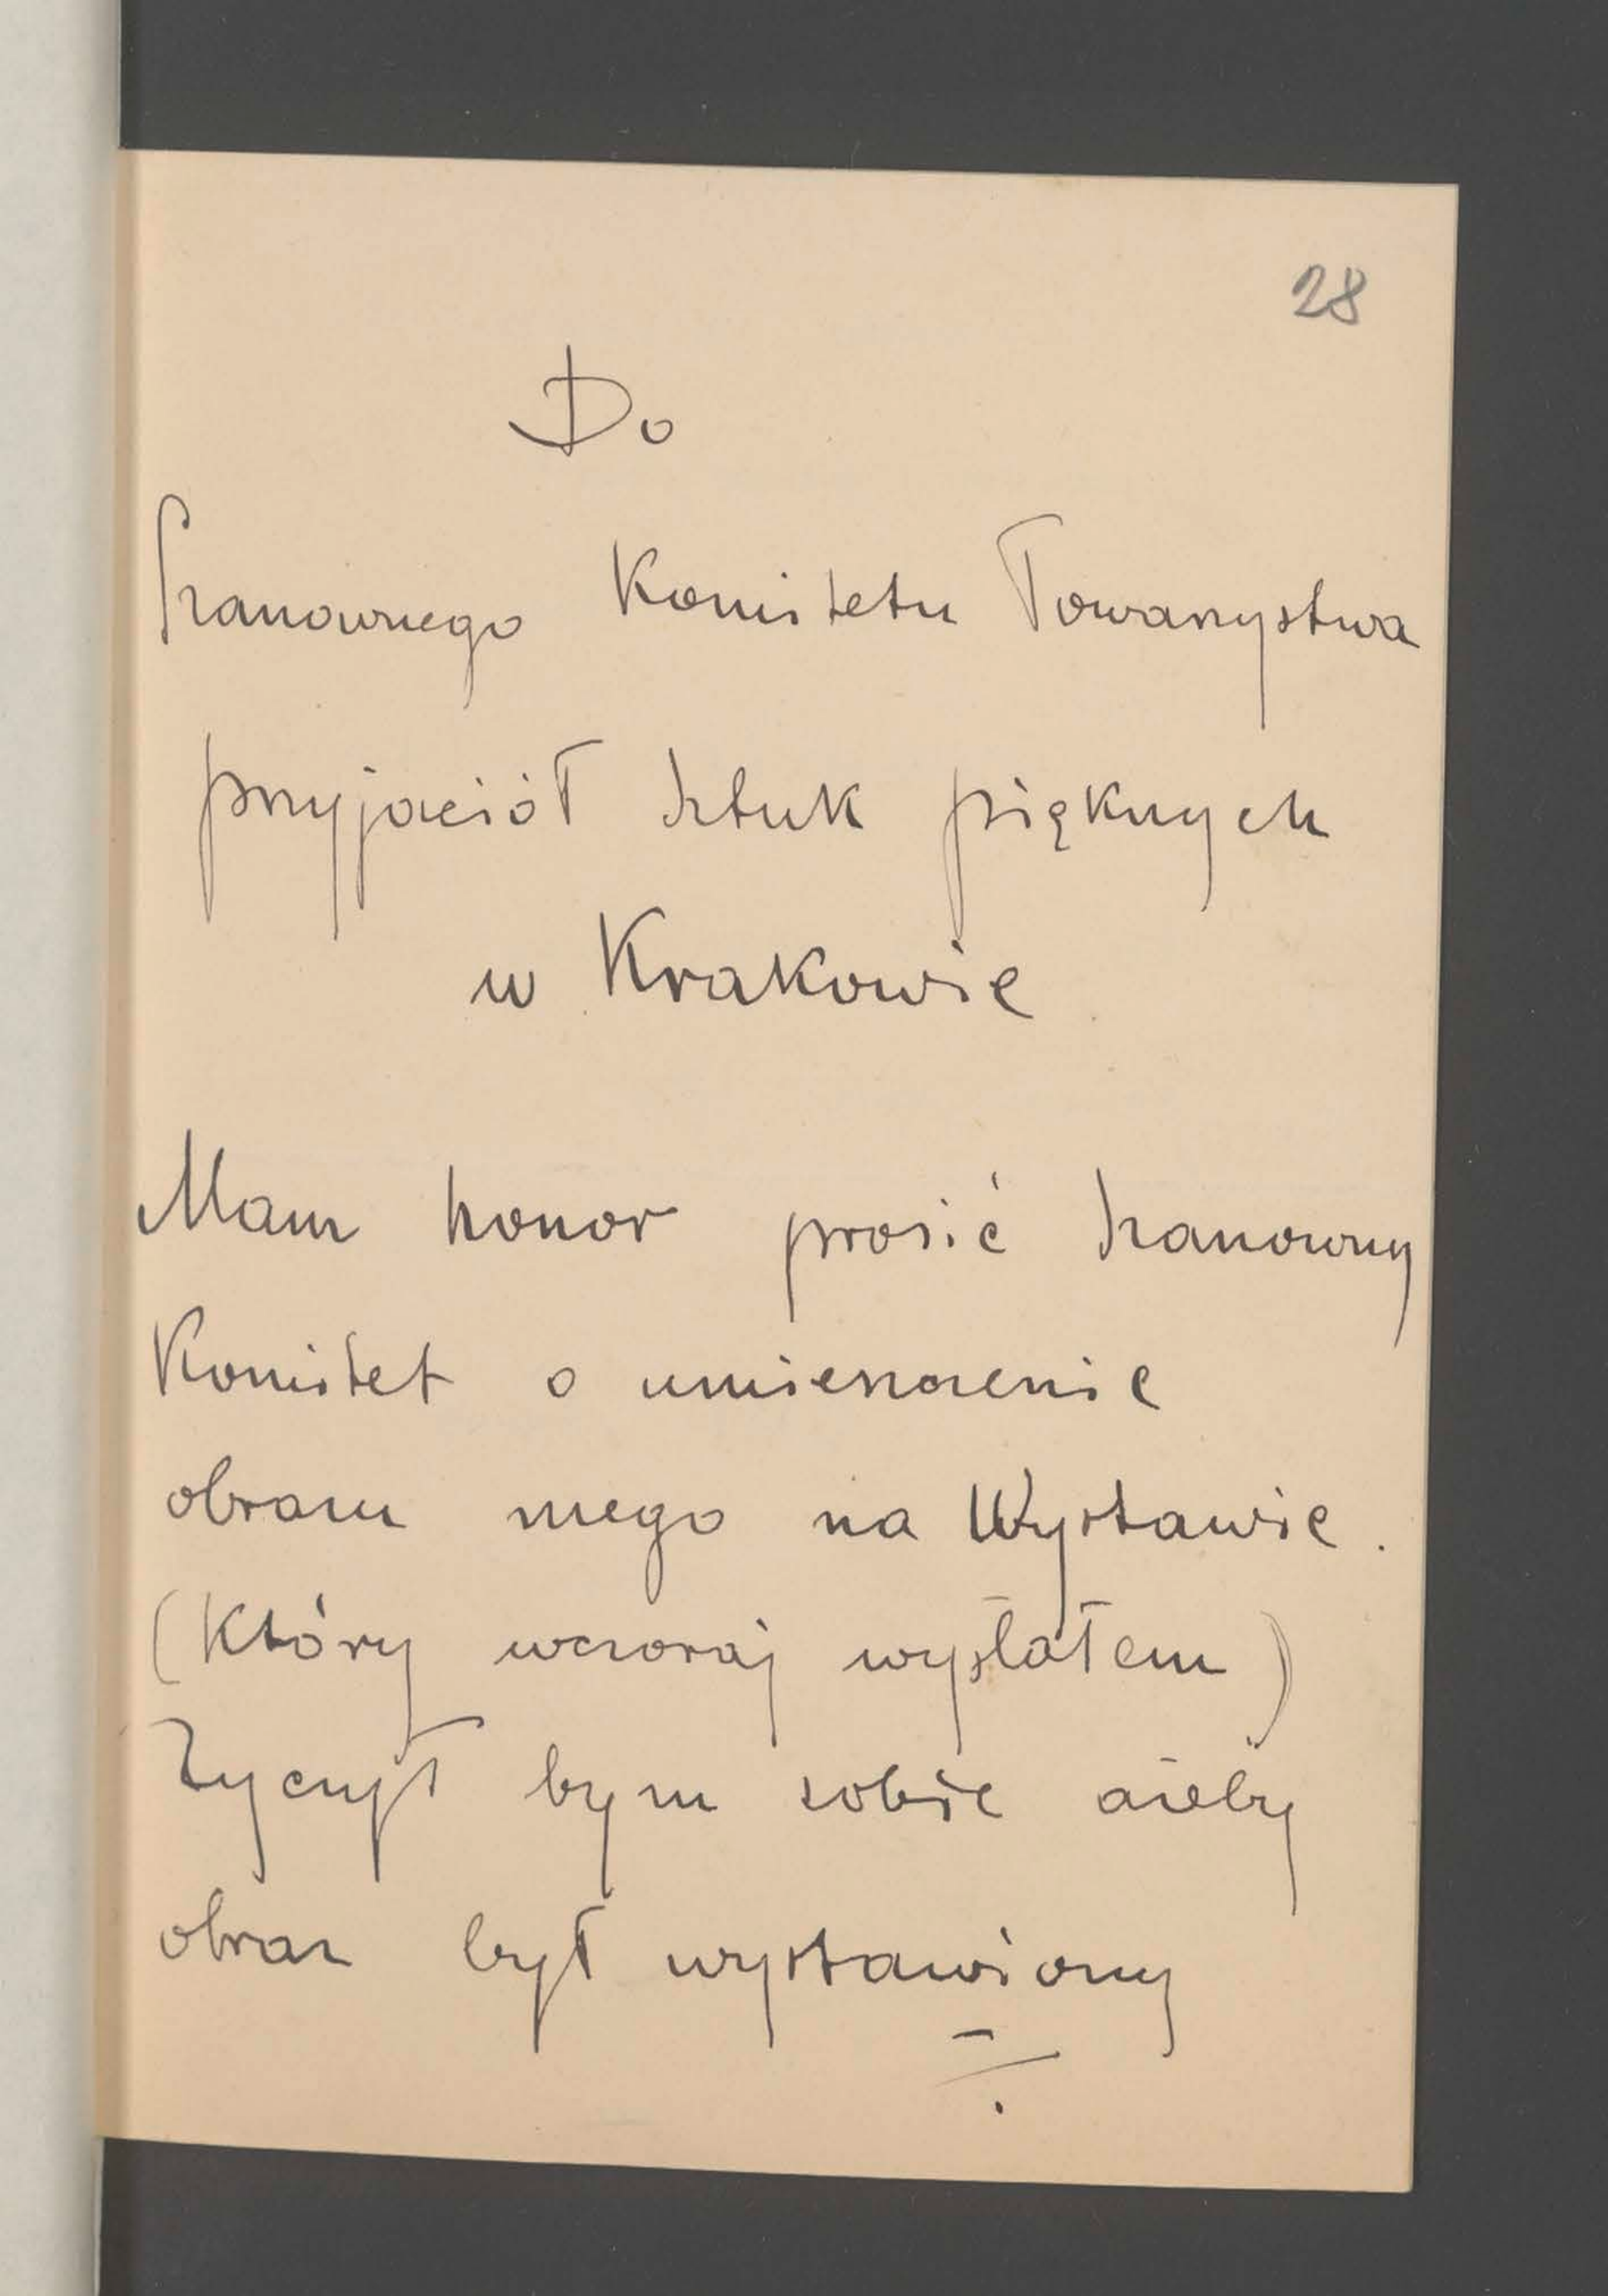 28
Do
Szanownego Komitetu Towarzystwa
przyjaciół sztuk pięknych
w Krakowie
Mam honor prosić szanowny
Komitet o umieszczenie
obrazu mego na Wystawie.
(który wczoraj wysłałem)
Życzył bym sobie ażeby
obraz był wystawiony